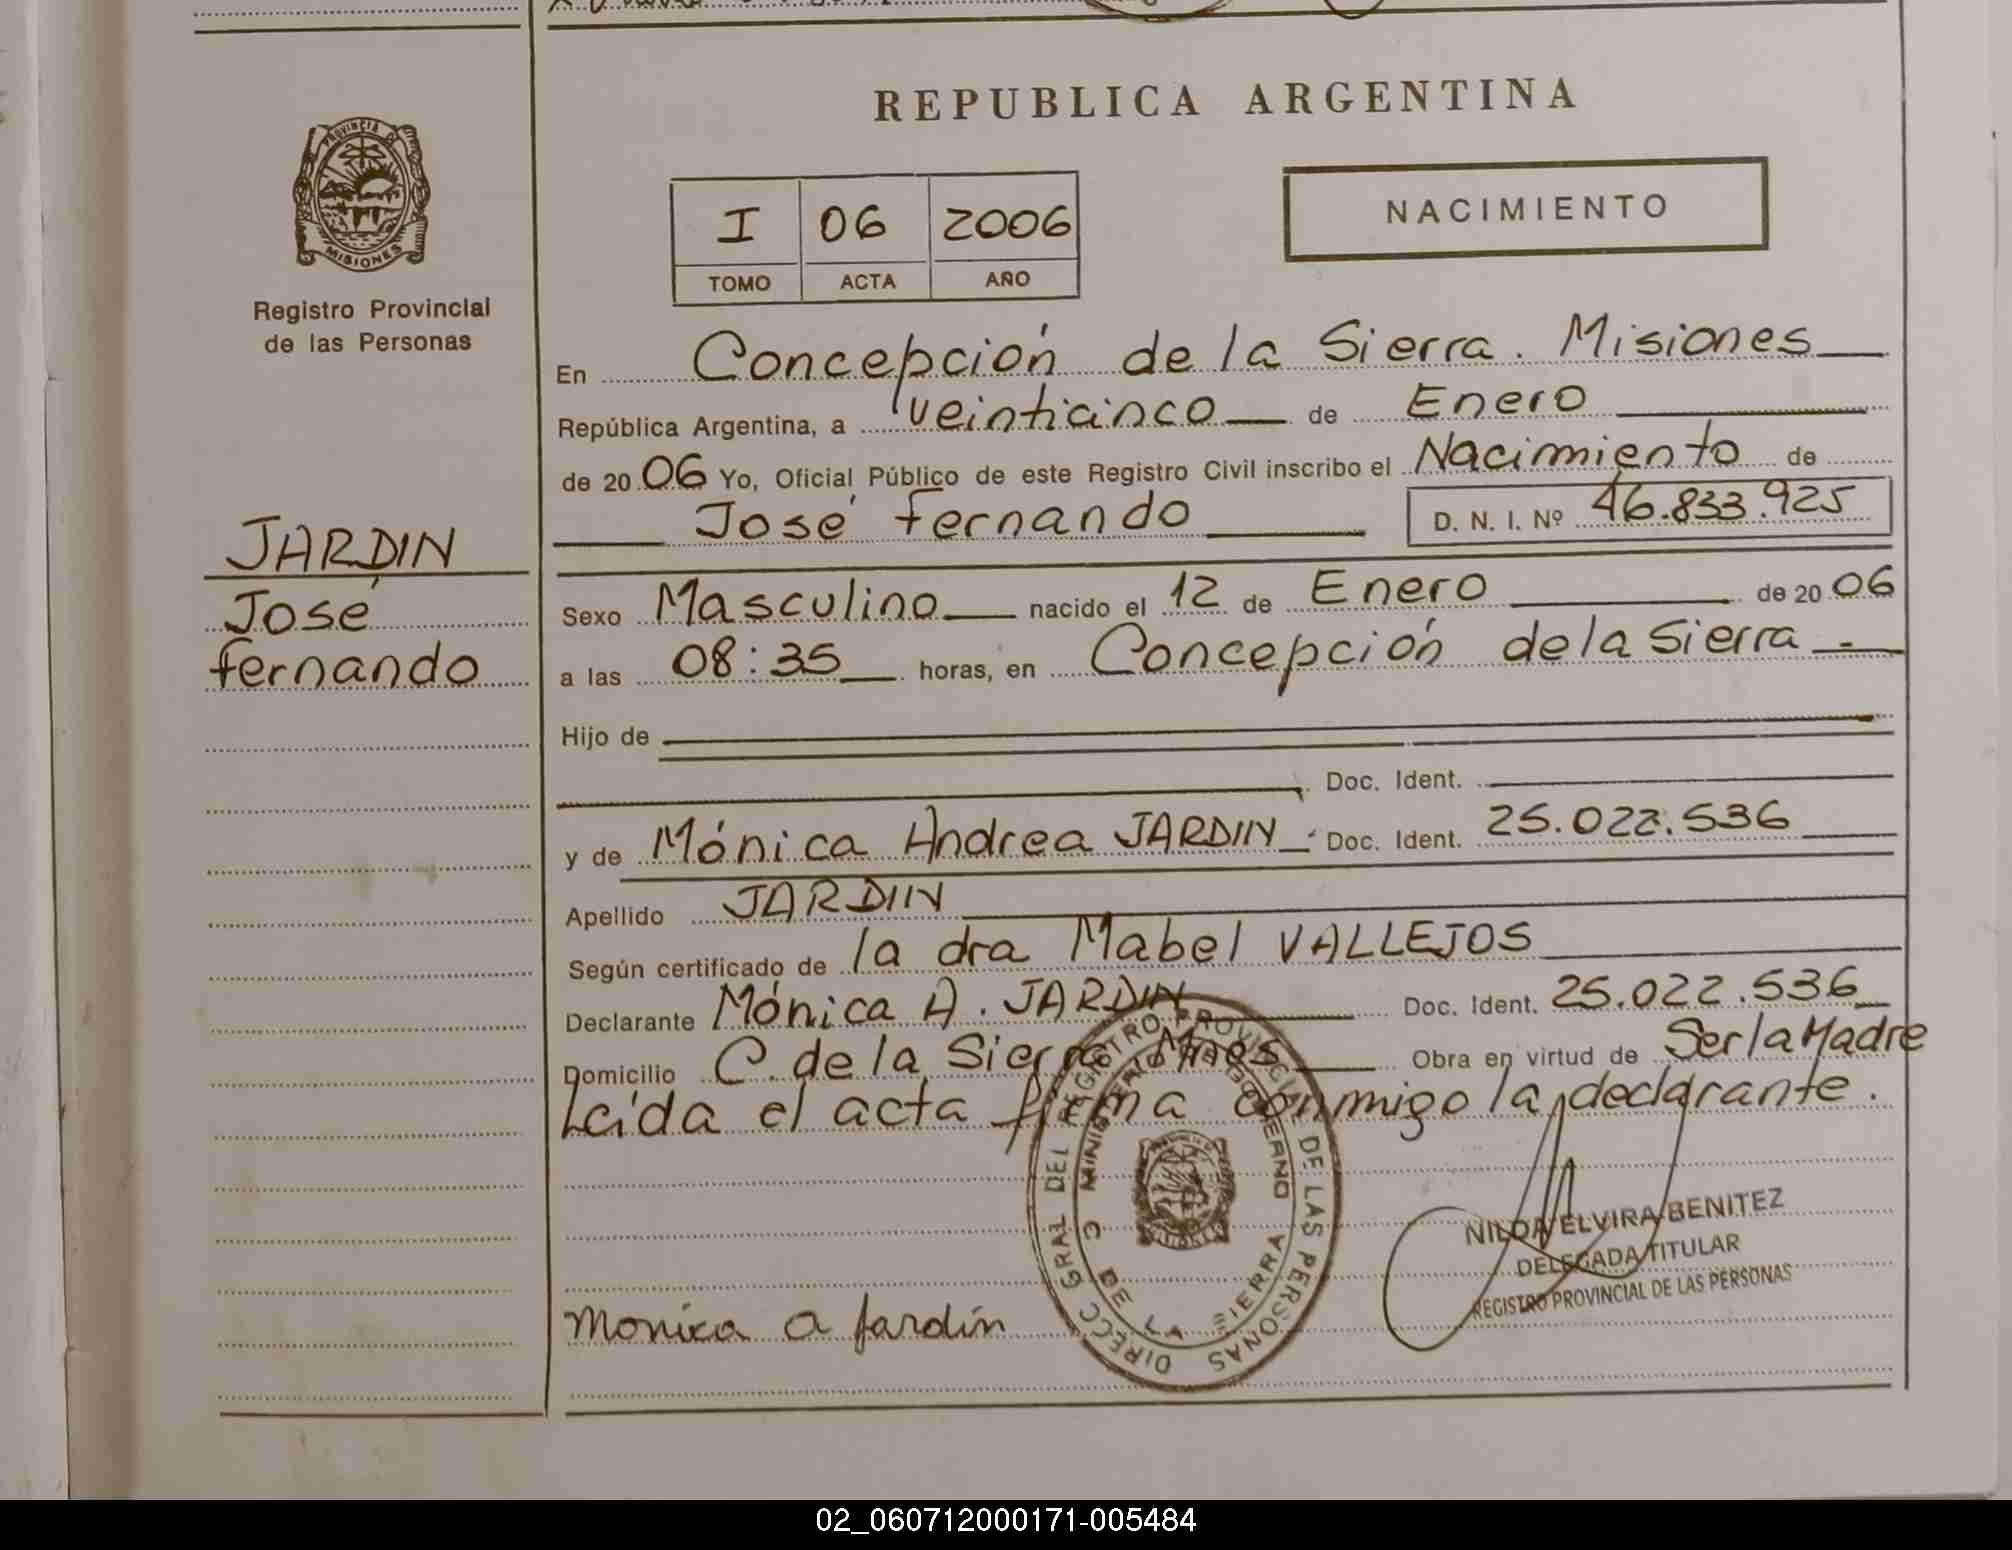 REPUBLICA ARGENTINA
PROVINCIA DE MISIONES
Registro Provincial
de las Personas
I 06 2006
TOMO ACTA AÑO
NACIMIENTO
JARDIN
José
Fernando
En Concepción de la Sierra. Misiones
República Argentina, a veinticinco de Enero
de 2006 Yo, Oficial Público de este Registro Civil inscribo el Nacimiento de
José Fernando D. N. I. Nº 46.833.925
Sexo Masculino nacido el 12 de Enero de 2006
a las 08:35 horas, en Concepción de la Sierra
Hijo de
Doc. Ident.
y de Mónica Andrea JARDIN Doc. Ident. 25.022.536
Apellido JARDIN
Según certificado de la dra Mabel VALLEJOS
Declarante Mónica A. JARDIN Doc. Ident. 25.022.536
Domicilio C. de la Sierra Mnes Obra en virtud de Ser la Madre
Leída el acta firma conmigo la declarante.
DIRECC GRAL DEL REGISTRO PROVINCIAL DE LAS PERSONAS
MINISTERIO DE GOBIERNO
C DE LA SIERRA
NILDA ELVIRA BENITEZ
DELEGADA TITULAR
REGISTRO PROVINCIAL DE LAS PERSONAS
Monica A Jardín
02_060712000171-005484